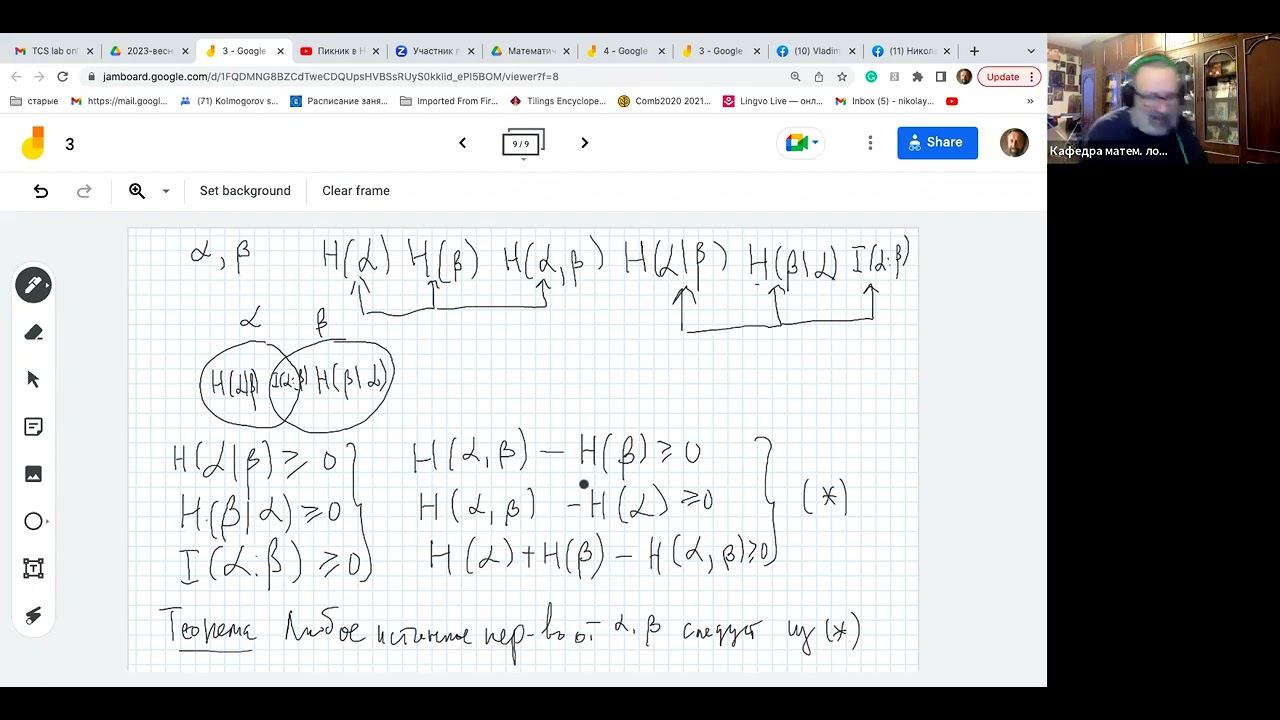 TCS lab onl
2023-весн
3 - Google
Пикник в Н
Участник п
Математич
4 - Google
3 - Google
(10) Vladim
(11) Никола
jamboard.google.com/d/1FQDMNG8BZCdTweCDQUpsHVBSsRUyS0kklid_ePl5BOM/viewer?f=8
Update
старые
https://mail.googl...
(71) Kolmogorov s...
Расписание заня...
Imported From Fir...
Tilings Encyclope...
Comb2020 2021...
Lingvo Live — онл...
Inbox (5) - nikolay...
»
3
9 / 9
Share
Set background
Clear frame
Кафедра матем. ло...
α, β H(α) H(β) H(α, β) H(α|β) H(β|α) I(α:β)
α β
H(α|β) I(α:β) H(β|α)
H(α|β) ≥ 0 H(α, β) – H(β) ≥ 0
H(β|α) ≥ 0 H(α, β) – H(α) ≥ 0 (*)
I(α:β) ≥ 0 H(α) + H(β) – H(α, β) ≥ 0
Теорема Любое истинное нер-во от α, β следует из (*)